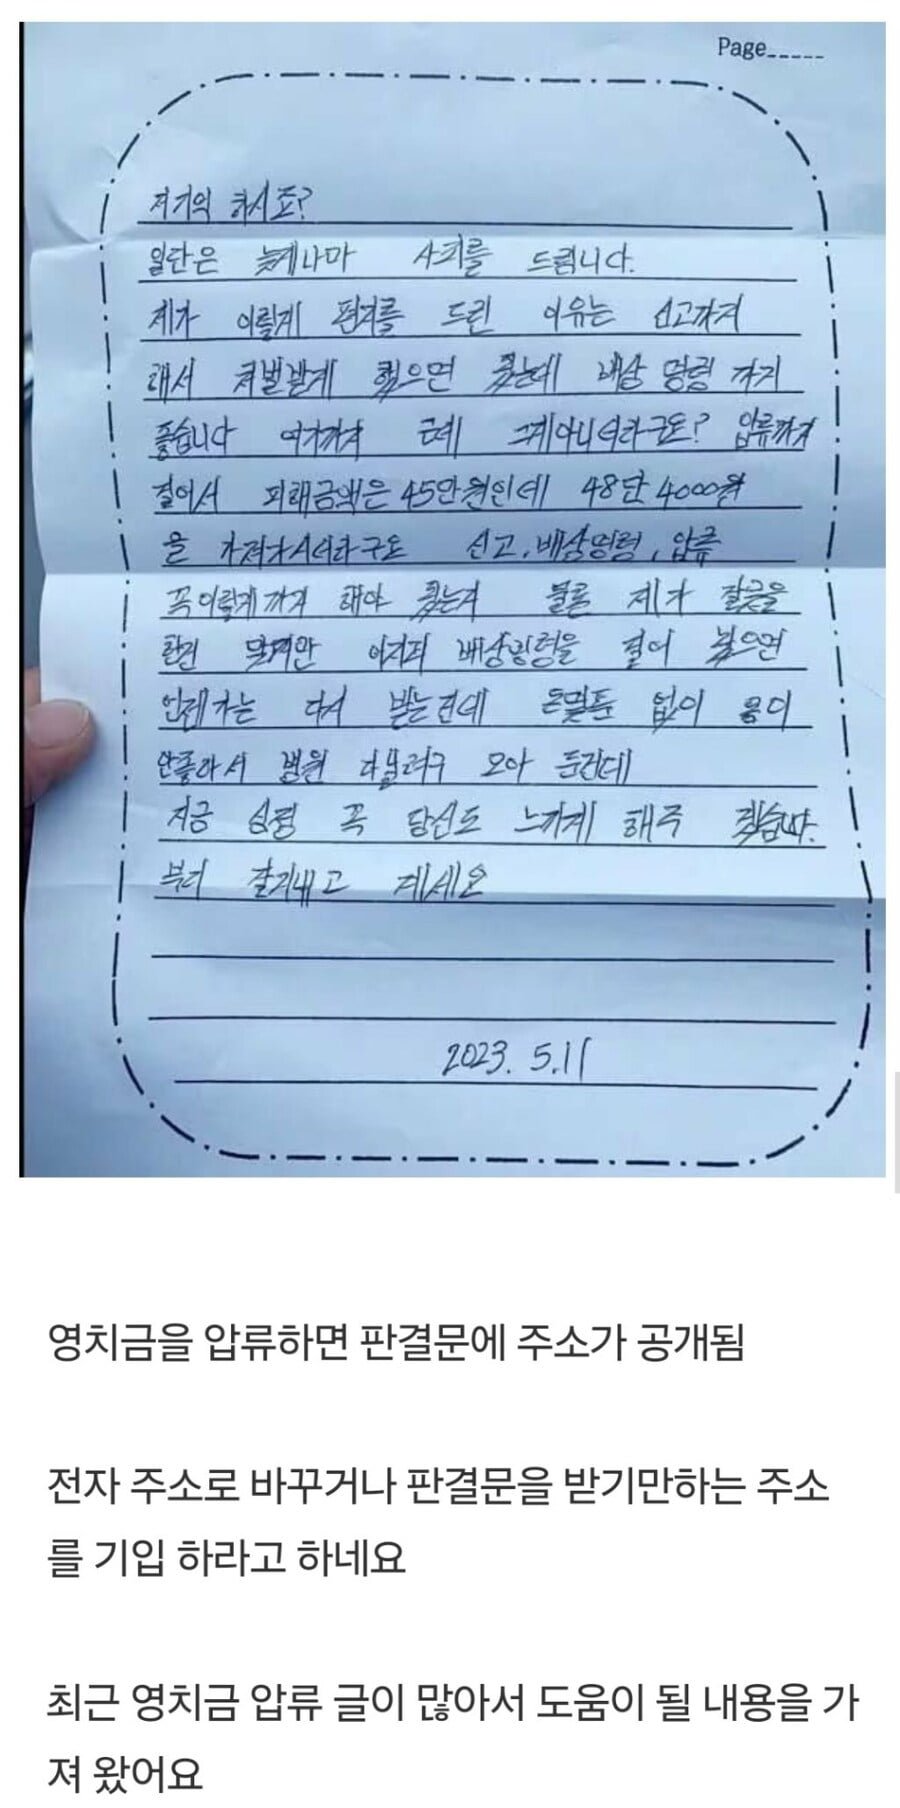 Page
저기억 하시죠?
일단은 늦게나마 사죄를 드립니다.
제가 이렇게 편지를 드린 이유는 신고까지
해서 처벌받게 했으면 됐는데 배상 명령 까지
좋습니다 여기까지 근데 그게아니더라구요? 압류까지
걸어서 피해금액은 45만원인데 48만 4000원
을 가져가시더라구요 신고,배상명령, 압류
꼭이렇게까지 해야 됐는지 물론 제가 잘못을
한건 맞지만 어차피 배상명령을 걸어 놨으면
언젠가는 다시 받는건데 돈없이 몸이
안좋아서 병원 다닐려구 모아 둔건데
지금 심정 꼭 당신도 느끼게 해주 겠습니다.
부디 잘지내고 계세요
2023. 5.11
영치금을 압류하면 판결문에 주소가 공개됨
전자 주소로 바꾸거나 판결문을 받기만하는 주소
를 기입 하라고 하네요
최근 영치금 압류 글이 많아서 도움이 될 내용을 가
져 왔어요